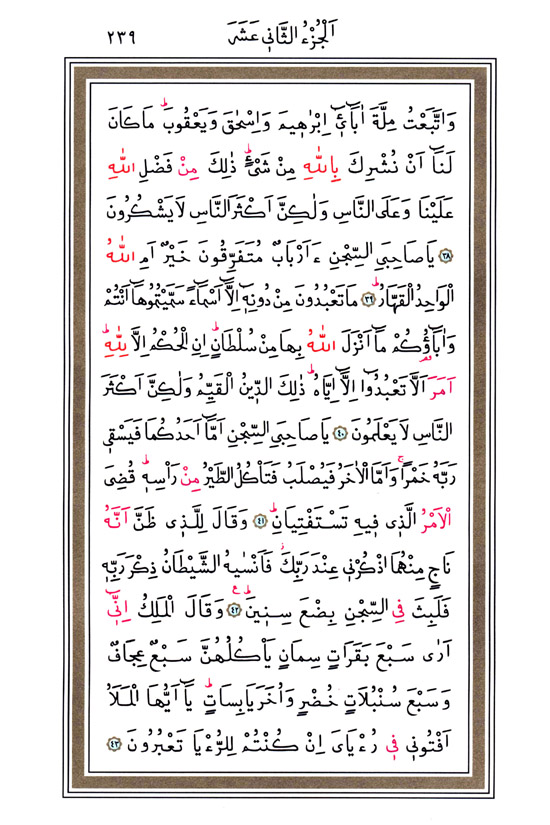 اَلْجُزْءُ الثَّانٖى عَشَرَ ٢٣٩
وَاتَّبَعْتُ مِلَّةَ اٰبَٓاءٖٓى اِبْرٰهٖيمَ وَاِسْحٰقَ وَيَعْقُوبَؕ مَا كَانَ
لَنَٓا اَنْ نُشْرِكَ بِاللّٰهِ مِنْ شَیْءٍؕ ذٰلِكَ مِنْ فَضْلِ اللّٰهِ
عَلَيْنَا وَعَلَى النَّاسِ وَلٰكِنَّ اَكْثَرَ النَّاسِ لَا يَشْكُرُونَ
﴿٣٨﴾ يَا صَاحِبَىِ السِّجْنِ ءَاَرْبَابٌ مُتَفَرِّقُونَ خَيْرٌ اَمِ اللّٰهُ
الْوَاحِدُ الْقَهَّارُؕ ﴿٣٩﴾ مَا تَعْبُدُونَ مِنْ دُونِهٖٓ اِلَّٓا اَسْمَٓاءً سَمَّيْتُمُوهَٓا اَنْتُمْ
وَاٰبَٓاؤُ۬كُمْ مَٓا اَنْزَلَ اللّٰهُ بِهَا مِنْ سُلْطَانٍؕ اِنِ الْحُكْمُ اِلَّا لِلّٰهِؕ
اَمَرَ اَلَّا تَعْبُدُٓوا اِلَّٓا اِيَّاهُؕ ذٰلِكَ الدّٖينُ الْقَيِّمُ وَلٰكِنَّ اَكْثَرَ
النَّاسِ لَا يَعْلَمُونَ ﴿٤٠﴾ يَا صَاحِبَىِ السِّجْنِ اَمَّٓا اَحَدُكُمَا فَيَسْقٖى
رَبَّهُ خَمْرًاۚ وَاَمَّا الْاٰخَرُ فَيُصْلَبُ فَتَاْكُلُ الطَّيْرُ مِنْ رَاْسِهٖؕ قُضِىَ
الْاَمْرُ الَّذٖى فٖيهِ تَسْتَفْتِيَانِؕ ﴿٤١﴾ وَقَالَ لِلَّذٖى ظَنَّ اَنَّهُ
نَاجٍ مِنْهُمَا اذْكُرْنٖى عِنْدَ رَبِّكَؗ فَاَنْسٰيهُ الشَّيْطَانُ ذِكْرَ رَبِّهٖ
فَلَبِثَ فِى السِّجْنِ بِضْعَ سِنٖينَؕ ﴿٤٢﴾ وَقَالَ الْمَلِكُ اِنّٖٓى
اَرٰى سَبْعَ بَقَرَاتٍ سِمَانٍ يَاْكُلُهُنَّ سَبْعٌ عِجَافٌ
وَسَبْعَ سُنْبُلَاتٍ خُضْرٍ وَاُخَرَ يَابِسَاتٍؕ يَٓا اَيُّهَا الْمَلَاُ
اَفْتُونٖى فٖى رُءْيَاىَ اِنْ كُنْتُمْ لِلرُّءْيَا تَعْبُرُونَ ﴿٤٣﴾